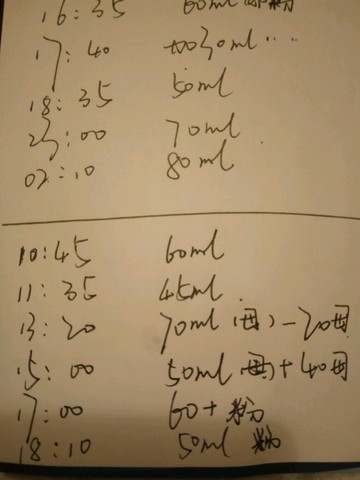 16:35 60ml 奶粉
17:40 30ml...
18:35 50ml
23:00 70ml
02:10 80ml
10:45 60ml
11:35 45ml
13:20 70ml
15:00 50ml
17:00 60+粉
18:10 50ml 粉